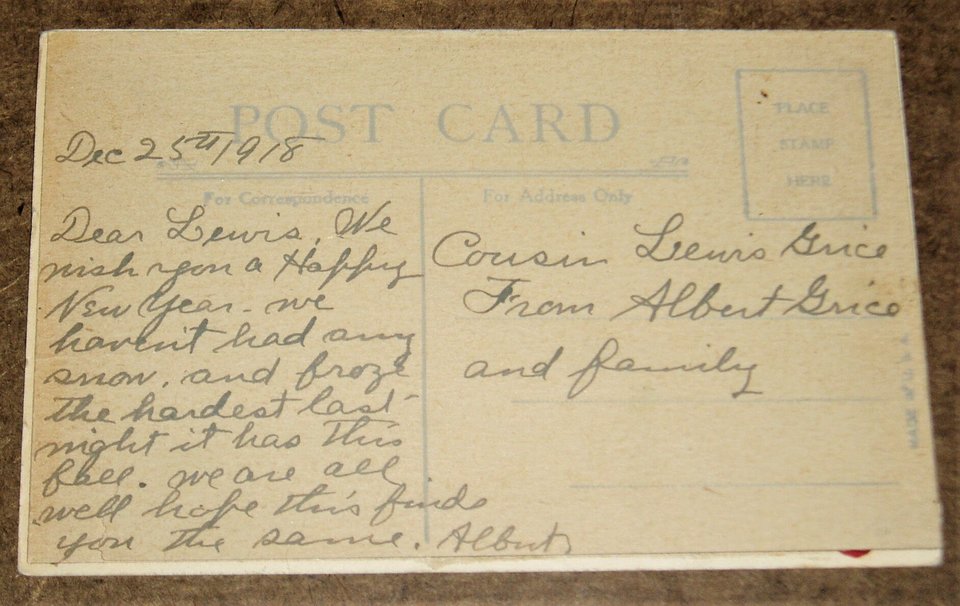 POST CARD
PLACE
STAMP
HERE
Dec 25TH 1918
For Correspondence
For Address Only
Dear Lewis, We
wish you a Happy
New Year. we
haven't had any
snow. and froze
the hardest last
night it has this
fall. we are all
well hope this finds
you the same. Albert
Cousin Lewis Grice
From Albert Grice
and family
MADE IN U.S.A.